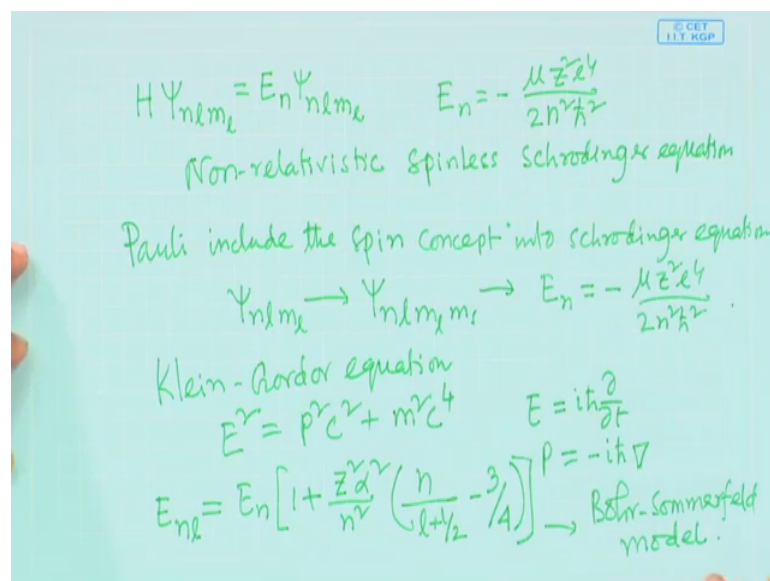 © CET
I.I.T. KGP
HΨnlmₗ = EₙΨnlmₗ    Eₙ = - μz²e⁴ / 2n²ħ²
Non-relativistic Spinless Schrodinger equation
Pauli include the Spin concept into schrodinger equation
Ψnlmₗ → Ψnlmₗmₛ → Eₙ = - μz²e⁴ / 2n²ħ² .
Klein-Gordor equation
E² = p²c² + m²c⁴    E = iħ ∂/∂t
P = -iħ∇
Eₙₗ = Eₙ [1 + z²α²/n² (n/(l+1/2) - 3/4)] → Bohr-Sommerfeld
model.